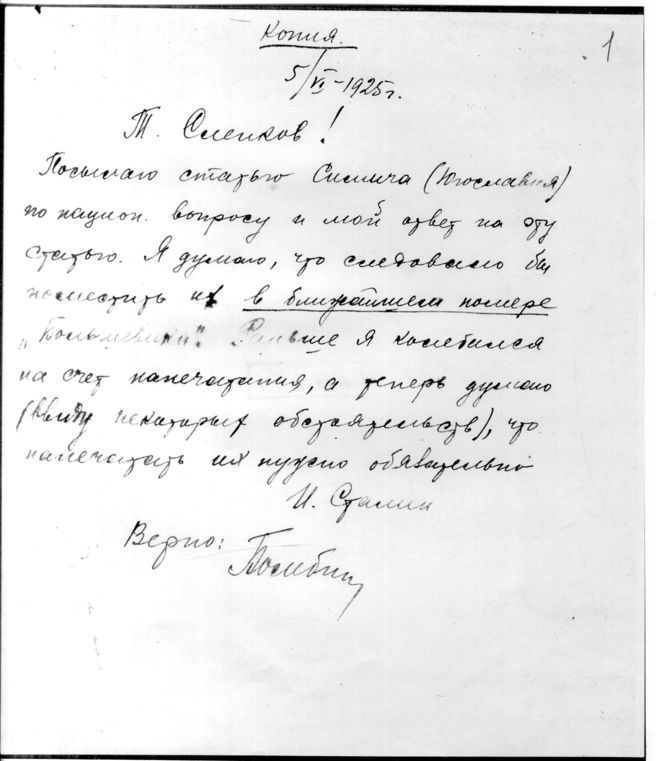 Копия.
1
5/VI-1925г.
Т. Слепков!
Посылаю статью Симича (Югославия)
по национ. вопросу и мой ответ на эту
статью. Я думаю, что следовало бы
поместить их в ближайшем номере
„Большевика". Раньше я колебался
на счет напечатания, а теперь думаю
(ввиду некоторых обстоятельств), что
напечатать их нужно обязательно
И. Сталин
Верно: